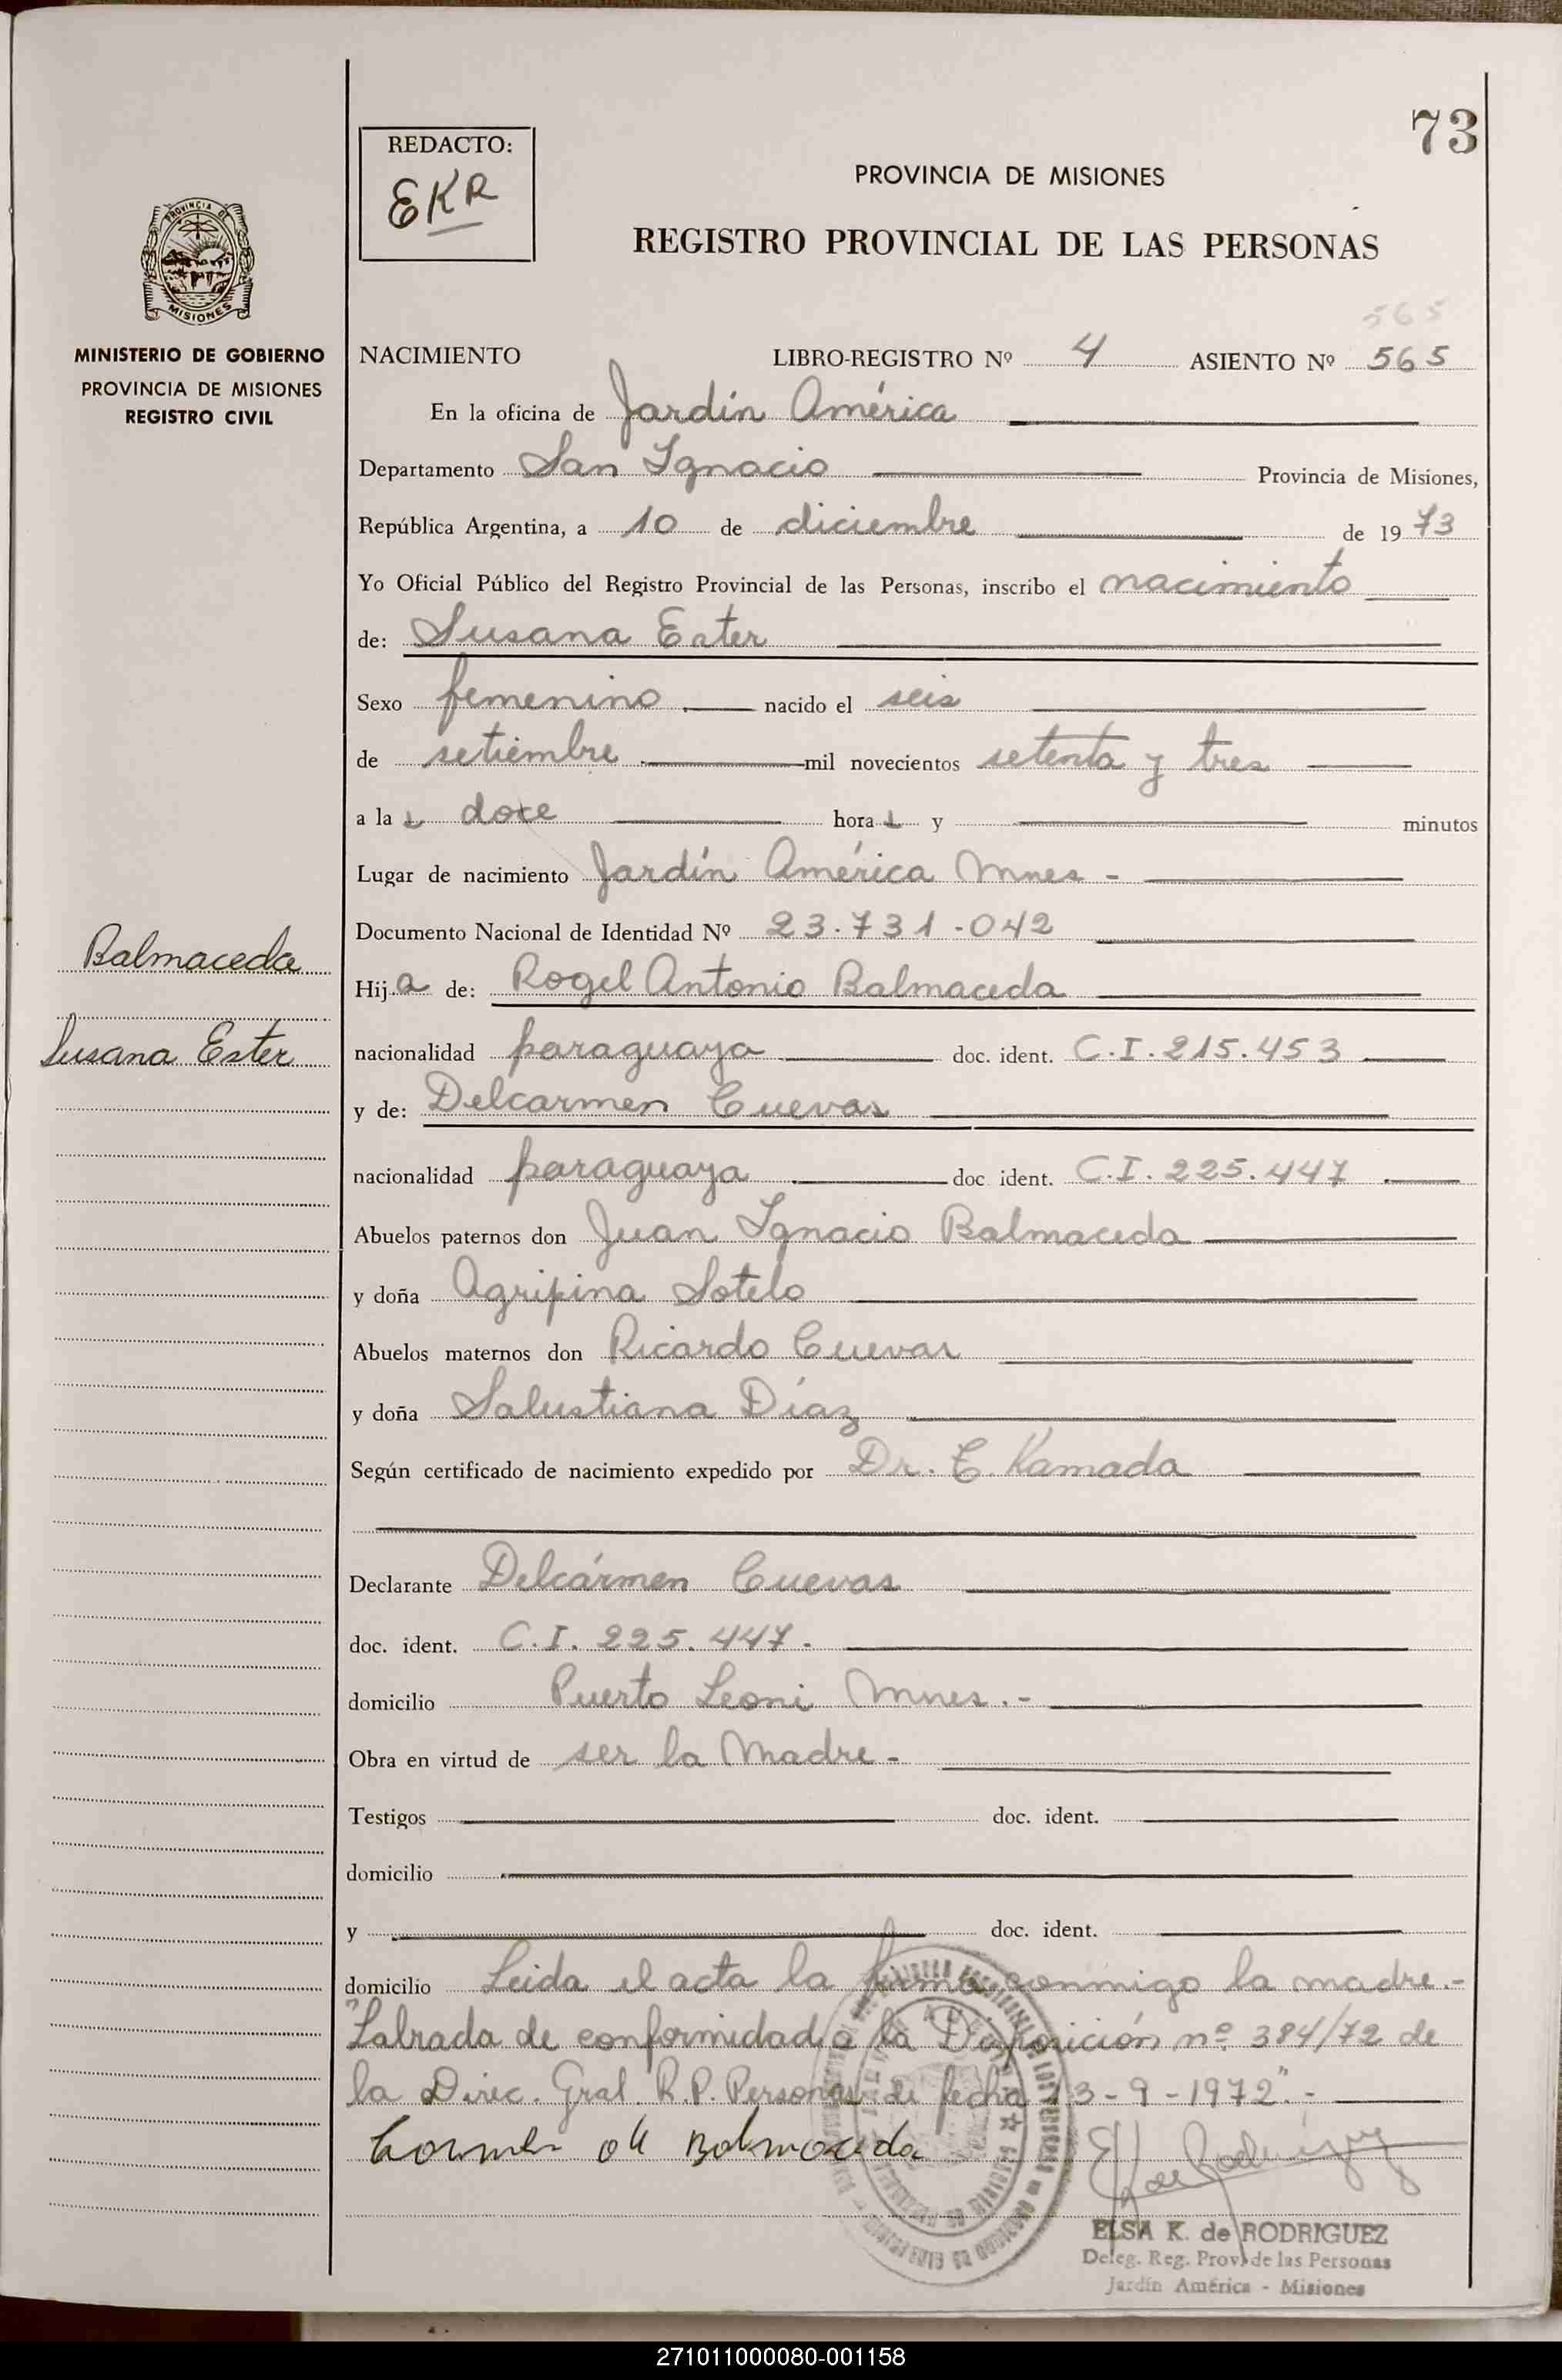 73
REDACTO:
EKR
PROVINCIA DE MISIONES
REGISTRO PROVINCIAL DE LAS PERSONAS
PROVINCIA DE
MISIONES
MINISTERIO DE GOBIERNO
PROVINCIA DE MISIONES
REGISTRO CIVIL
565
NACIMIENTO LIBRO-REGISTRO Nº 4 ASIENTO Nº 565
En la oficina de Jardín América
Departamento San Ignacio Provincia de Misiones,
República Argentina, a 10 de diciembre de 1973
Yo Oficial Público del Registro Provincial de las Personas, inscribo el nacimiento
de: Susana Ester
Sexo femenino nacido el seis
de setiembre mil novecientos setenta y tres
a las doce horas y minutos
Lugar de nacimiento Jardín América Mnes -
Documento Nacional de Identidad Nº 23.731.042
Balmaceda
Susana Ester
Hija de: Rogel Antonio Balmaceda
nacionalidad paraguaya doc. ident. C.I. 215.453
y de: Delcarmen Cuevas
nacionalidad paraguaya doc ident. C.I. 225.447
Abuelos paternos don Juan Ignacio Balmaceda
y doña Agripina Sotelo
Abuelos maternos don Ricardo Cuevas
y doña Salustiana Díaz
Según certificado de nacimiento expedido por Dr. C. Kamada
Declarante Delcármen Cuevas
doc. ident. C.I. 225.447.
domicilio Puerto Leoni Mnes.-
Obra en virtud de ser la Madre -
Testigos doc. ident.
domicilio
y doc. ident.
domicilio Leida el acta la firma conmigo la madre.-
"Labrada de conformidad a la Disposición nº 384/72 de
la Direc. Gral. R.P. Personas de fecha 13-9-1972".-
Balmaceda
ELSA K. de RODRIGUEZ
Deleg. Reg. Prov. de las Personas
Jardín América - Misiones
271011000080-001158